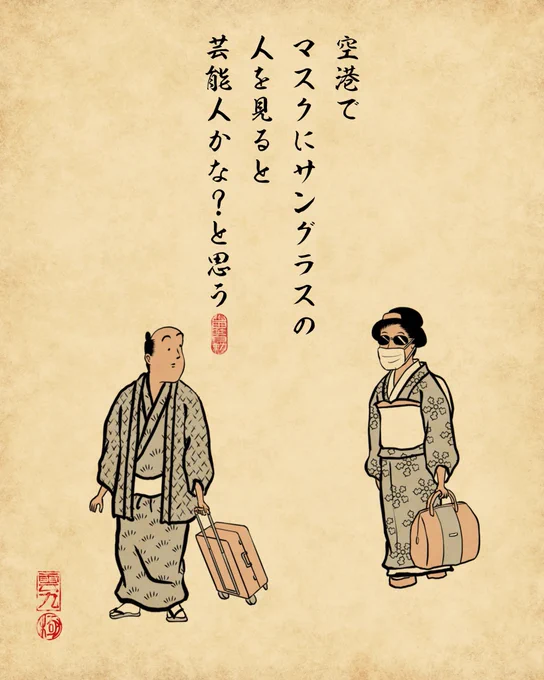 空港で
マスクにサングラスの
人を見ると
芸能人かな？と思う